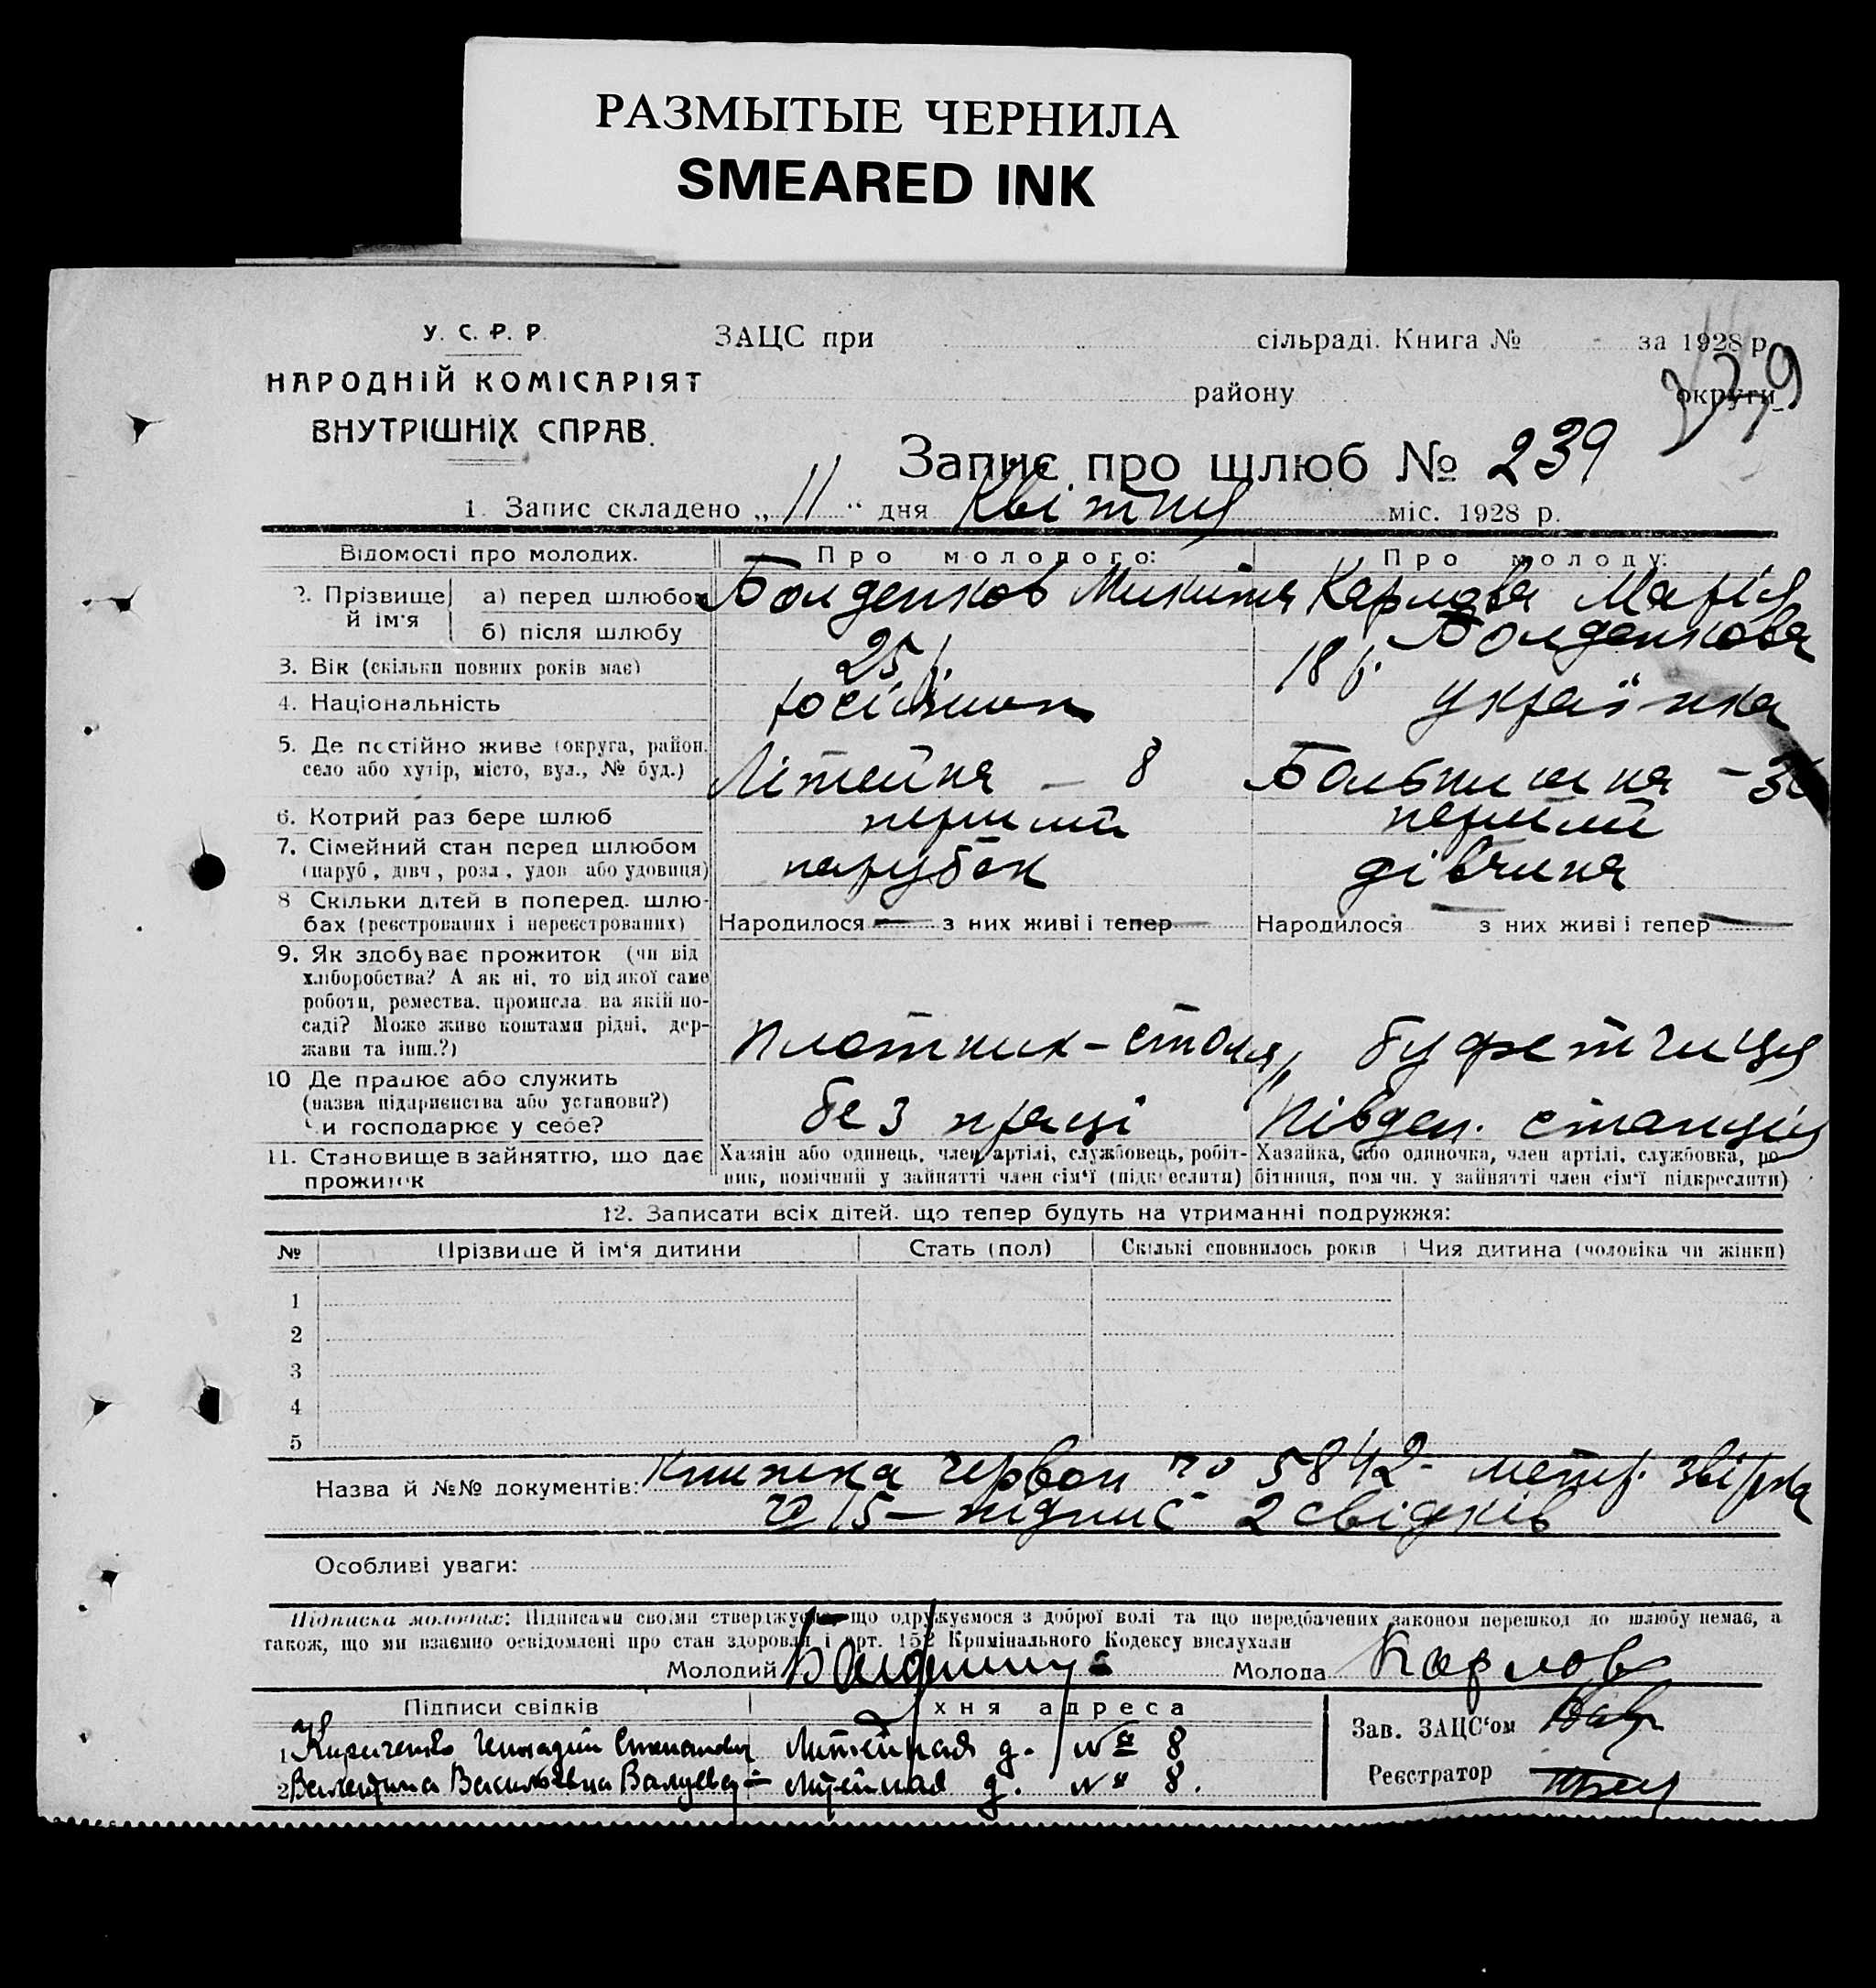 РАЗМЫТЫЕ ЧЕРНИЛА
SMEARED INK
У. С. Р. Р.
НАРОДНІЙ КОМІСАРІЯТ
ВНУТРІШНІХ СПРАВ.
ЗАЦС при сільраді. Книга № за 1928 р.
району округи
Запис про шлюб № 239
1. Запис складено „ 11 “ дня Квітня міс. 1928 р.
Відомості про молодих. Про молодого: Про молоду:
2. Прізвище й ім'я
а) перед шлюбом Болденков Микита Карлова Марія
б) після шлюбу Болденкова
3. Вік (скільки повних років має) 25 р. 18 р.
4. Національність українка
5. Де постійно живе (округа, район,
село або хутір, місто, вул., № буд.) Літейна – 8
6. Котрий раз бере шлюб перший перший
7. Сімейний стан перед шлюбом
(паруб., дівч., розл., удов. або удовиця) парубок дівчина
8 Скільки дітей в поперед. шлю-
бах (реєстрованих і нереєстрованих) Народилося — з них живі і тепер — Народилося — з них живі і тепер —
9. Як здобуває прожиток (чи від
хліборобства? А як ні, то від якої саме
роботи, ремества, промисла, на якій по-
саді? Може живе коштами рідні, дер-
жави та інш.?) Плотник-столяр буфетчиця
10 Де працює або служить
(назва підприємства або установи?)
Чи господарює у себе? без праці Півден. станція
11. Становище в зайняттю, що дає
прожиток
Хазяін або одинець, член артілі, службовець, робіт-
ник, помічний у зайнятті член сім'ї (підкреслити)
Хазяйка, або одиночка, член артілі, службовка, ро-
бітниця, пом чн. у зайнятті член сім'ї підкреслити)
12. Записати всіх дітей, що тепер будуть на утриманні подружжя:
№ Прізвише й ім'я дитини Стать (пол) Скількі сповнилось років Чия дитина (чоловіка чи жінки)
1
2
3
4
5
Назва й №№ документів: Книжка червон no 5842 - метр. звірка
no 15 – підпис 2 свідків
Особливі уваги:
Підписка молодих: Підписами своїми стверджуємо, що одружуємося з доброї волі та що передбачених законом перешкод до шлюбу немає, а
також, що ми взаємно освідомлені про стан здоровля і арт. 152 Кримінального Кодексу вислухали
Молодий Молода Карлова
Підписи свідків Їхня адреса
1 Кириченко Геннадий Степанович Литейная д. № 8
2 Валентина Васильевна Валуева – Литейная д. № 8.
Зав. ЗАЦС'ом
Реєстратор